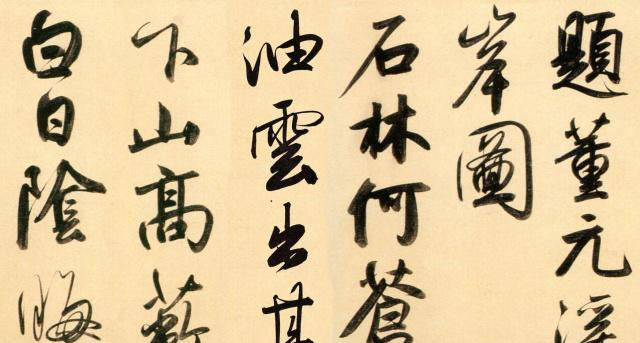 題董元溪
岸圖
石林何蒼
油雲出其
下山高蔽
白日陰晦